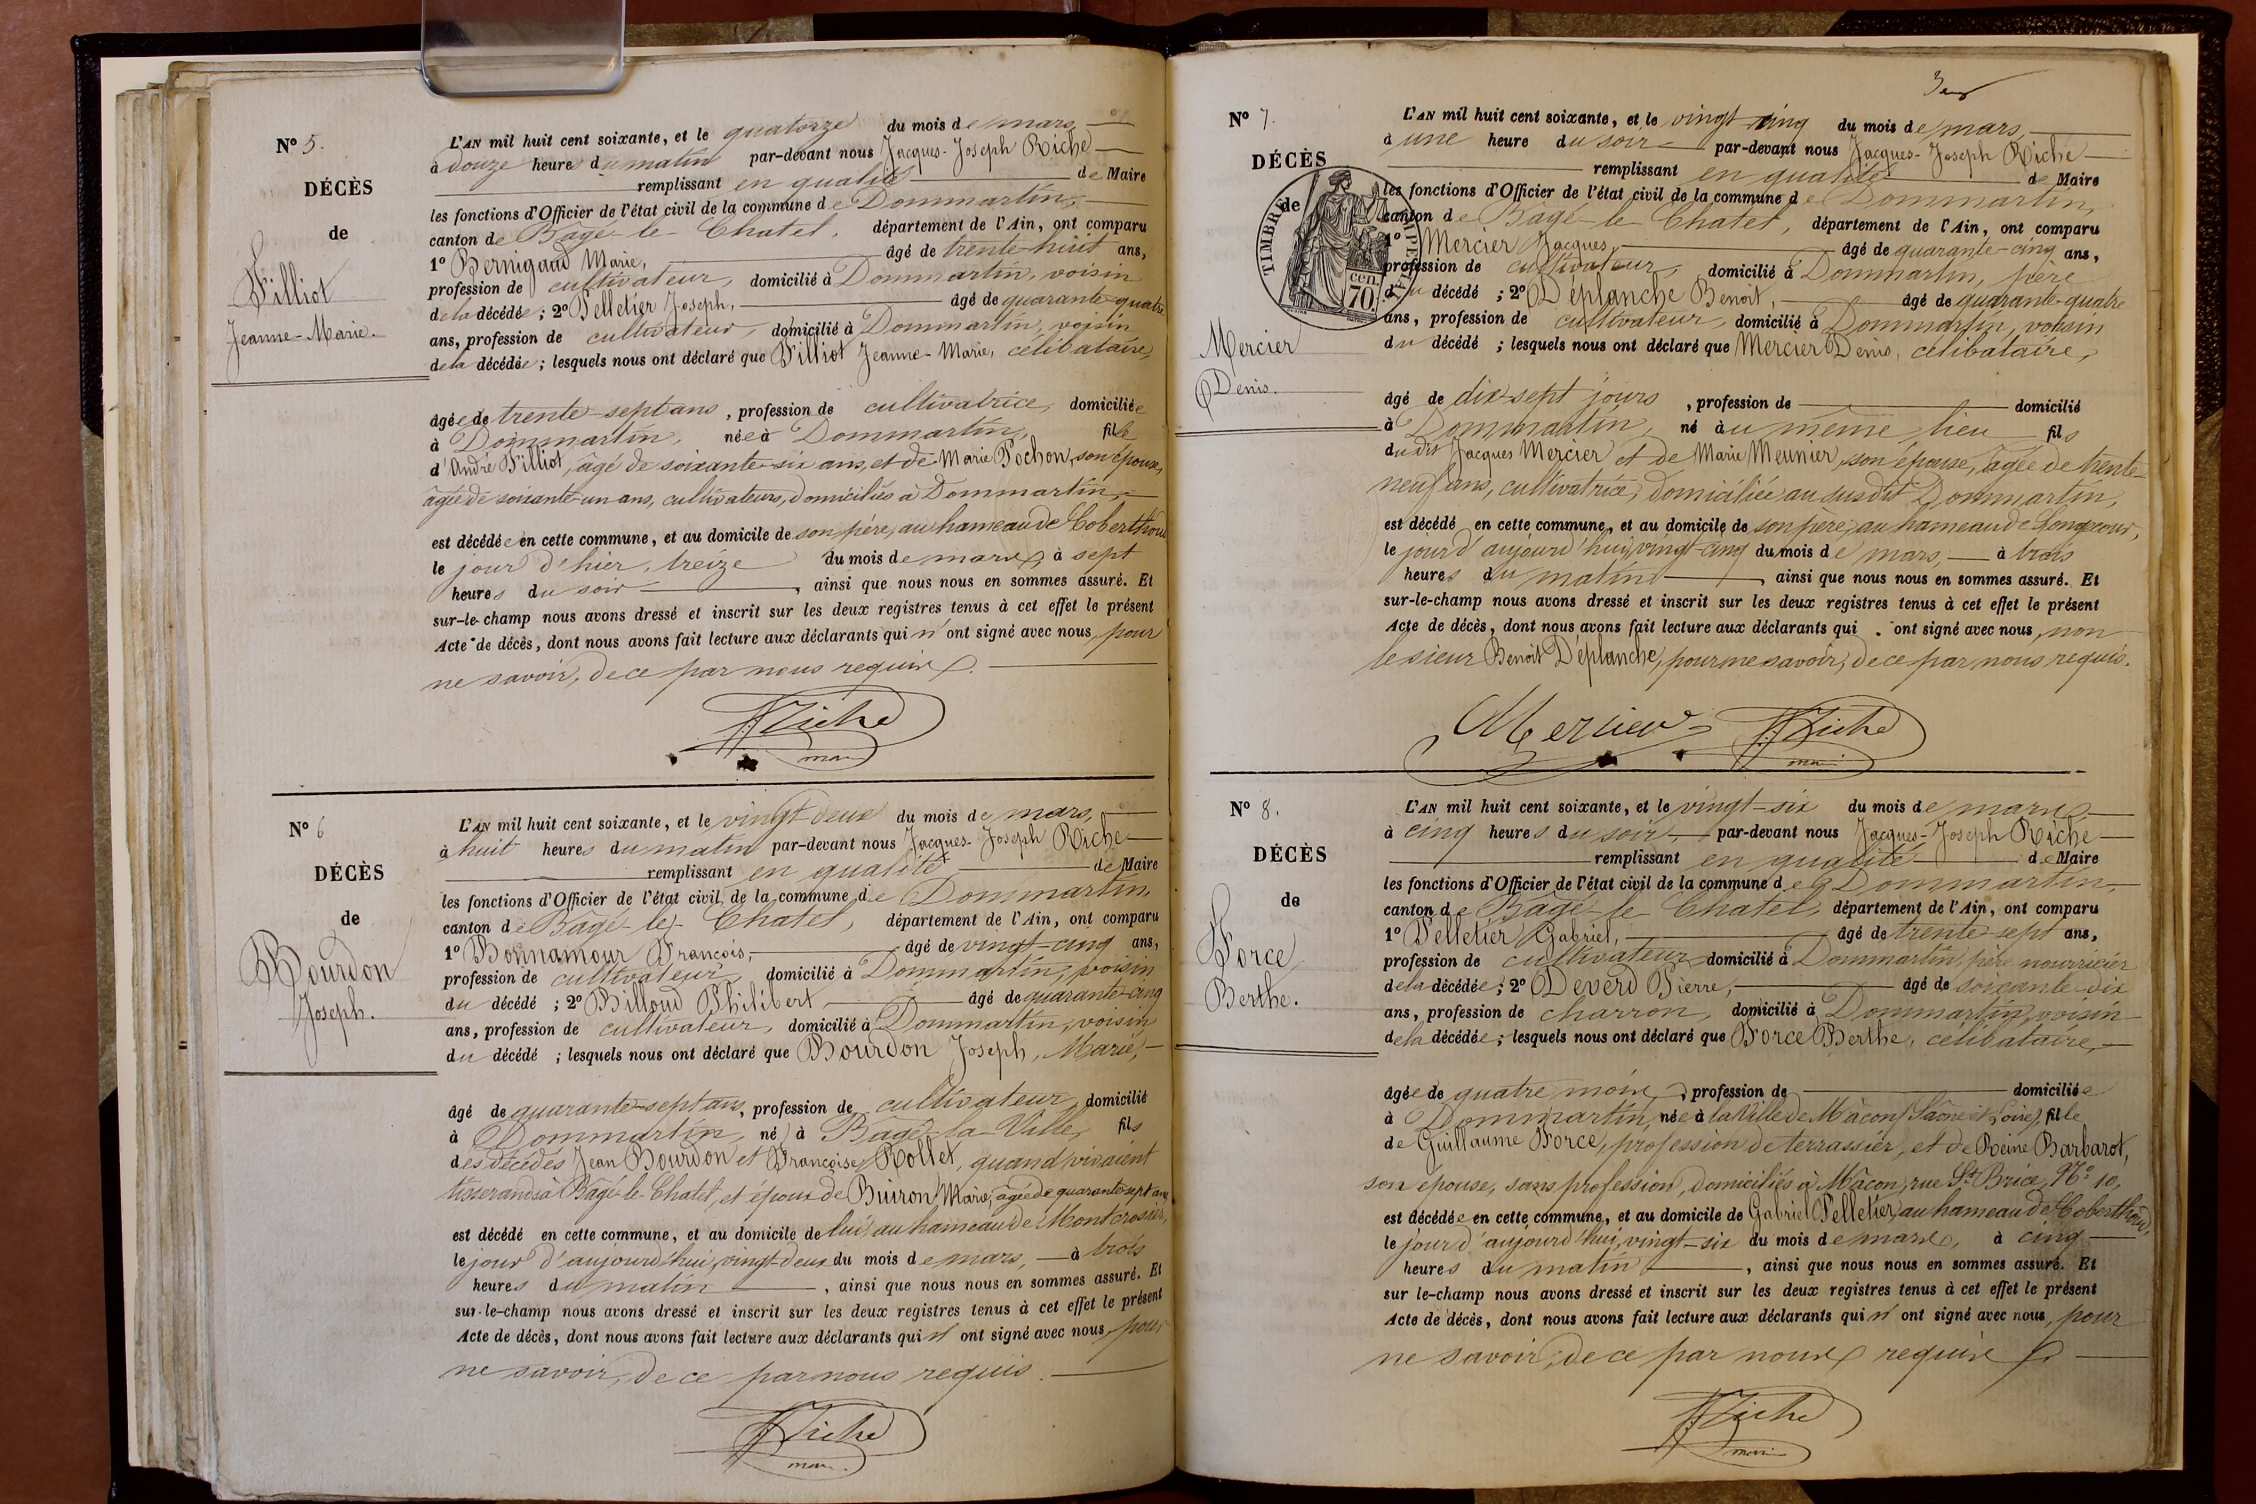 N° 5.
DÉCÈS
de
Filliot
Jeanne-Marie.
L'AN mil huit cent soixante, et le quatorze du mois de mars,
à douze heures du matin par-devant nous Jacques-Joseph Riche
remplissant en qualité de Maire
les fonctions d'Officier de l'état civil de la commune de Dommartin,
canton de Bâgé-le-Chatel, département de l'Ain, ont comparu
1° Bernigaud Marie, âgé de trente-huit ans,
profession de cultivateur, domicilié à Dommartin, voisin
de la décédée ; 2° Pelletier Joseph, âgé de quarante-quatre
ans, profession de cultivateur, domicilié à Dommartin, voisin
de la décédée ; lesquels nous ont déclaré que Filliot Jeanne-Marie, célibataire,
âgée de trente-sept ans, profession de cultivatrice, domiciliée
à Dommartin, née à Dommartin, fille
d'André Filliot, âgé de soixante-six ans, et de Marie Pochon, son épouse,
âgée de soixante-un ans, cultivateurs, domiciliés à Dommartin,
est décédée en cette commune, et au domicile de son père, au hameau de Coberthoud
le jour d'hier, treize du mois de mars, à sept
heures du soir, ainsi que nous nous en sommes assuré. Et
sur-le-champ nous avons dressé et inscrit sur les deux registres tenus à cet effet le présent
Acte de décès, dont nous avons fait lecture aux déclarants qui n'ont signé avec nous, pour
ne savoir, de ce par nous requis.
Riche
maire
N° 6
DÉCÈS
de
Bourdon
Joseph.
L'AN mil huit cent soixante, et le vingt-deux du mois de mars,
à huit heures du matin par-devant nous Jacques-Joseph Riche
remplissant en qualité de Maire
les fonctions d'Officier de l'état civil de la commune de Dommartin,
canton de Bâgé-le-Chatel, département de l'Ain, ont comparu
1° Bonnamour François, âgé de vingt-cinq ans,
profession de cultivateur, domicilié à Dommartin, voisin
du décédé ; 2° Billoud Philibert âgé de quarante-cinq
ans, profession de cultivateur, domicilié à Dommartin, voisin
du décédé ; lesquels nous ont déclaré que Bourdon Joseph, Marié,
âgé de quarante-sept ans, profession de cultivateur, domicilié
à Dommartin, né à Bâgé-la-Ville, fils
des décédés Jean Bourdon et Françoise Rollet, quand vivaient
tisserands à Bâgé-le-Chatel, et époux de Buiron Marie, âgée de quarante-sept ans,
est décédé en cette commune, et au domicile de lui au hameau de Montcrosier,
le jour d'aujourd'hui, vingt-deux du mois de mars, à trois
heures du matin, ainsi que nous nous en sommes assuré. Et
sur-le-champ nous avons dressé et inscrit sur les deux registres tenus à cet effet le présent
Acte de décès, dont nous avons fait lecture aux déclarants qui n'ont signé avec nous, pour
ne savoir, de ce par nous requis.
Riche
maire
N° 7.
DÉCÈS
de
TIMBRE IMPÉRIAL
70 cen.
Mercier
Denis.
L'AN mil huit cent soixante, et le vingt-cinq du mois de mars,
à une heure du soir par-devant nous Jacques-Joseph Riche
remplissant en qualité de Maire
les fonctions d'Officier de l'état civil de la commune de Dommartin,
canton de Bâgé-le-Chatel, département de l'Ain, ont comparu
1° Mercier Jacques, âgé de quarante-cinq ans,
profession de cultivateur, domicilié à Dommartin, père
du décédé ; 2° Déplanche Benoit, âgé de quarante-quatre
ans, profession de cultivateur, domicilié à Dommartin, voisin
du décédé ; lesquels nous ont déclaré que Mercier Denis, célibataire,
âgé de dix-sept jours, profession de domicilié
à Dommartin, né au même lieu fils
dudit Jacques Mercier et de Marie Meunier, son épouse, âgée de trente-
neuf ans, cultivatrice, domiciliée au susdit Dommartin,
est décédé en cette commune, et au domicile de son père, au hameau de
le jour d'aujourd'hui, vingt-cinq du mois de mars, à trois
heures du matin, ainsi que nous nous en sommes assuré. Et
sur-le-champ nous avons dressé et inscrit sur les deux registres tenus à cet effet le présent
Acte de décès, dont nous avons fait lecture aux déclarants qui ont signé avec nous, non
le sieur Benoit Déplanche, pour ne savoir, de ce par nous requis.
Mercier Riche
maire
N° 8.
DÉCÈS
de
Force
Berthe.
L'AN mil huit cent soixante, et le vingt-six du mois de mars,
à cinq heures du soir par-devant nous Jacques-Joseph Riche
remplissant en qualité de Maire
les fonctions d'Officier de l'état civil de la commune de Dommartin,
canton de Bâgé-le-Chatel, département de l'Ain, ont comparu
1° Pelletier Gabriel, âgé de trente-sept ans,
profession de cultivateur, domicilié à Dommartin, père nourricier
de la décédée ; 2° Deverd Pierre, âgé de soixante-dix
ans, profession de charron, domicilié à Dommartin, voisin
de la décédée ; lesquels nous ont déclaré que Force Berthe, célibataire,
âgée de quatre mois, profession de domiciliée
à Dommartin, née à la Ville de Mâcon (Saône et Loire), fille
de Guillaume Force, profession de terrassier, et de Reine Barbarot,
son épouse, sans profession, domiciliés à Mâcon, rue St Brice, N° 10,
est décédée en cette commune, et au domicile de Gabriel Pelletier, au hameau de Coberthoud,
le jour d'aujourd'hui, vingt-six du mois de mars, à cinq
heures du matin, ainsi que nous nous en sommes assuré. Et
sur le-champ nous avons dressé et inscrit sur les deux registres tenus à cet effet le présent
Acte de décès, dont nous avons fait lecture aux déclarants qui n'ont signé avec nous, pour
ne savoir, de ce par nous requis
Riche
maire